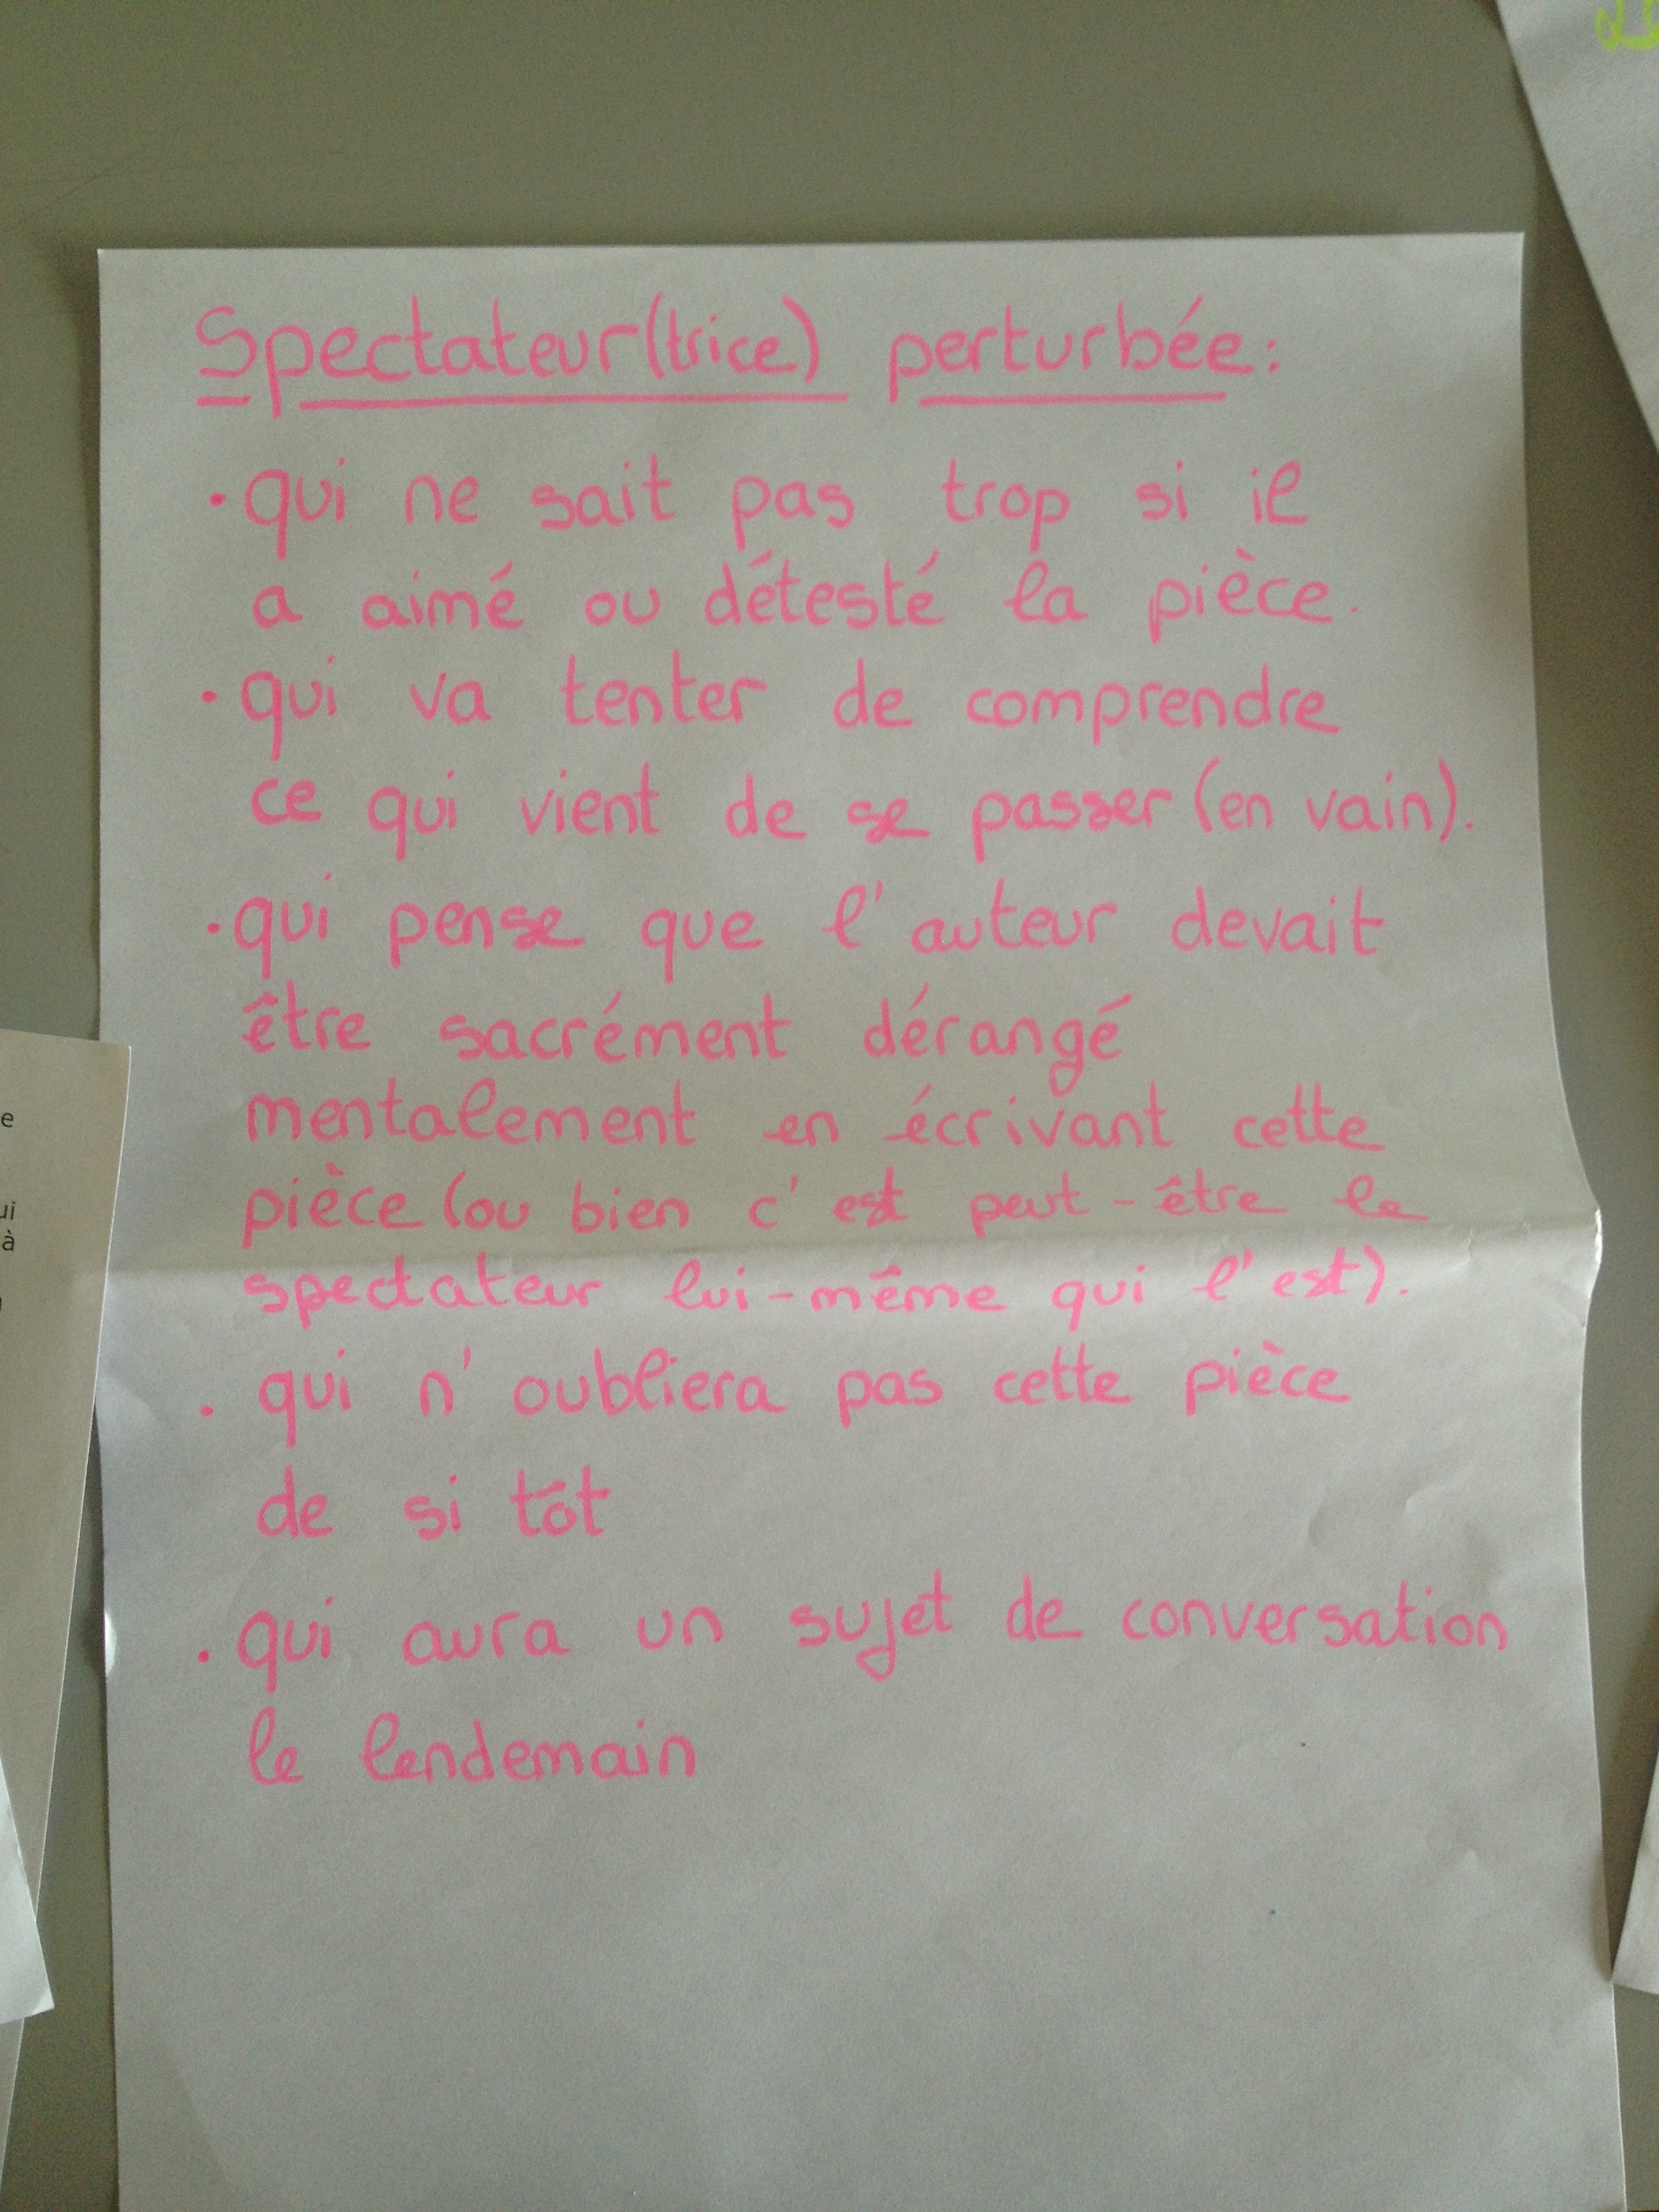 Spectateur(trice) perturbée:
· qui ne sait pas trop si il
a aimé ou détesté la pièce.
· qui va tenter de comprendre
ce qui vient de se passer (en vain).
· qui pense que l'auteur devait
être sacrément dérangé
mentalement en écrivant cette
pièce (ou bien c'est peut-être le
spectateur lui-même qui l'est).
. qui n'oubliera pas cette pièce
de si tôt
. qui aura un sujet de conversation
le lendemain
e
ui
à